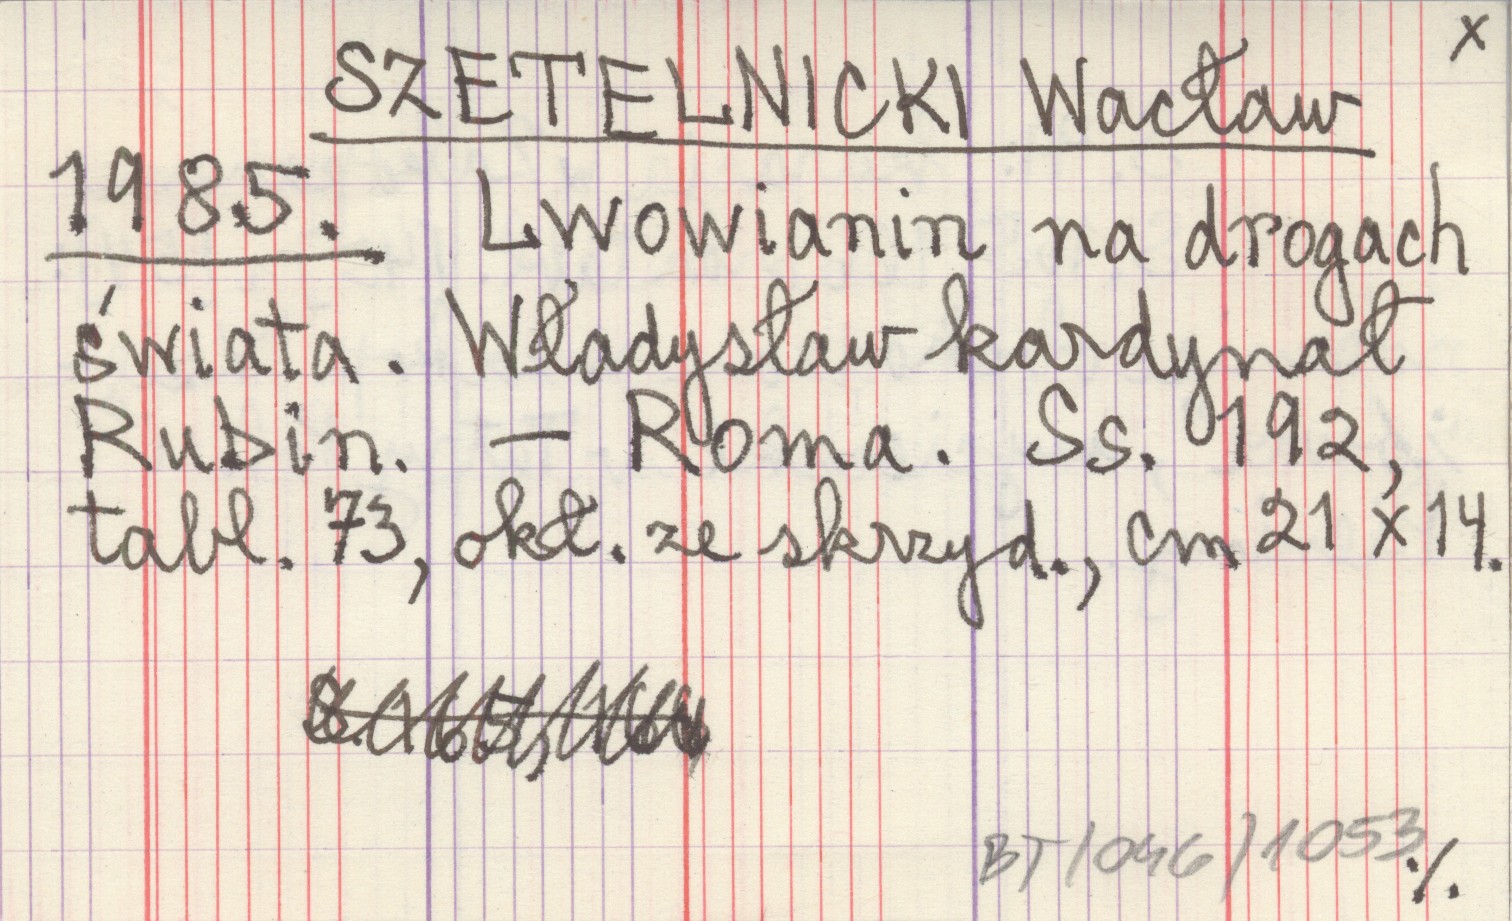 x
SZETELNICKI Wacław
1985. Lwowianin na drogach
świata. Władysław kardynał
Rubin. — Roma. Ss. 192,
tabl. 73, okł. ze skrzyd., cm 21 x 14.
BT/046/1053
./.